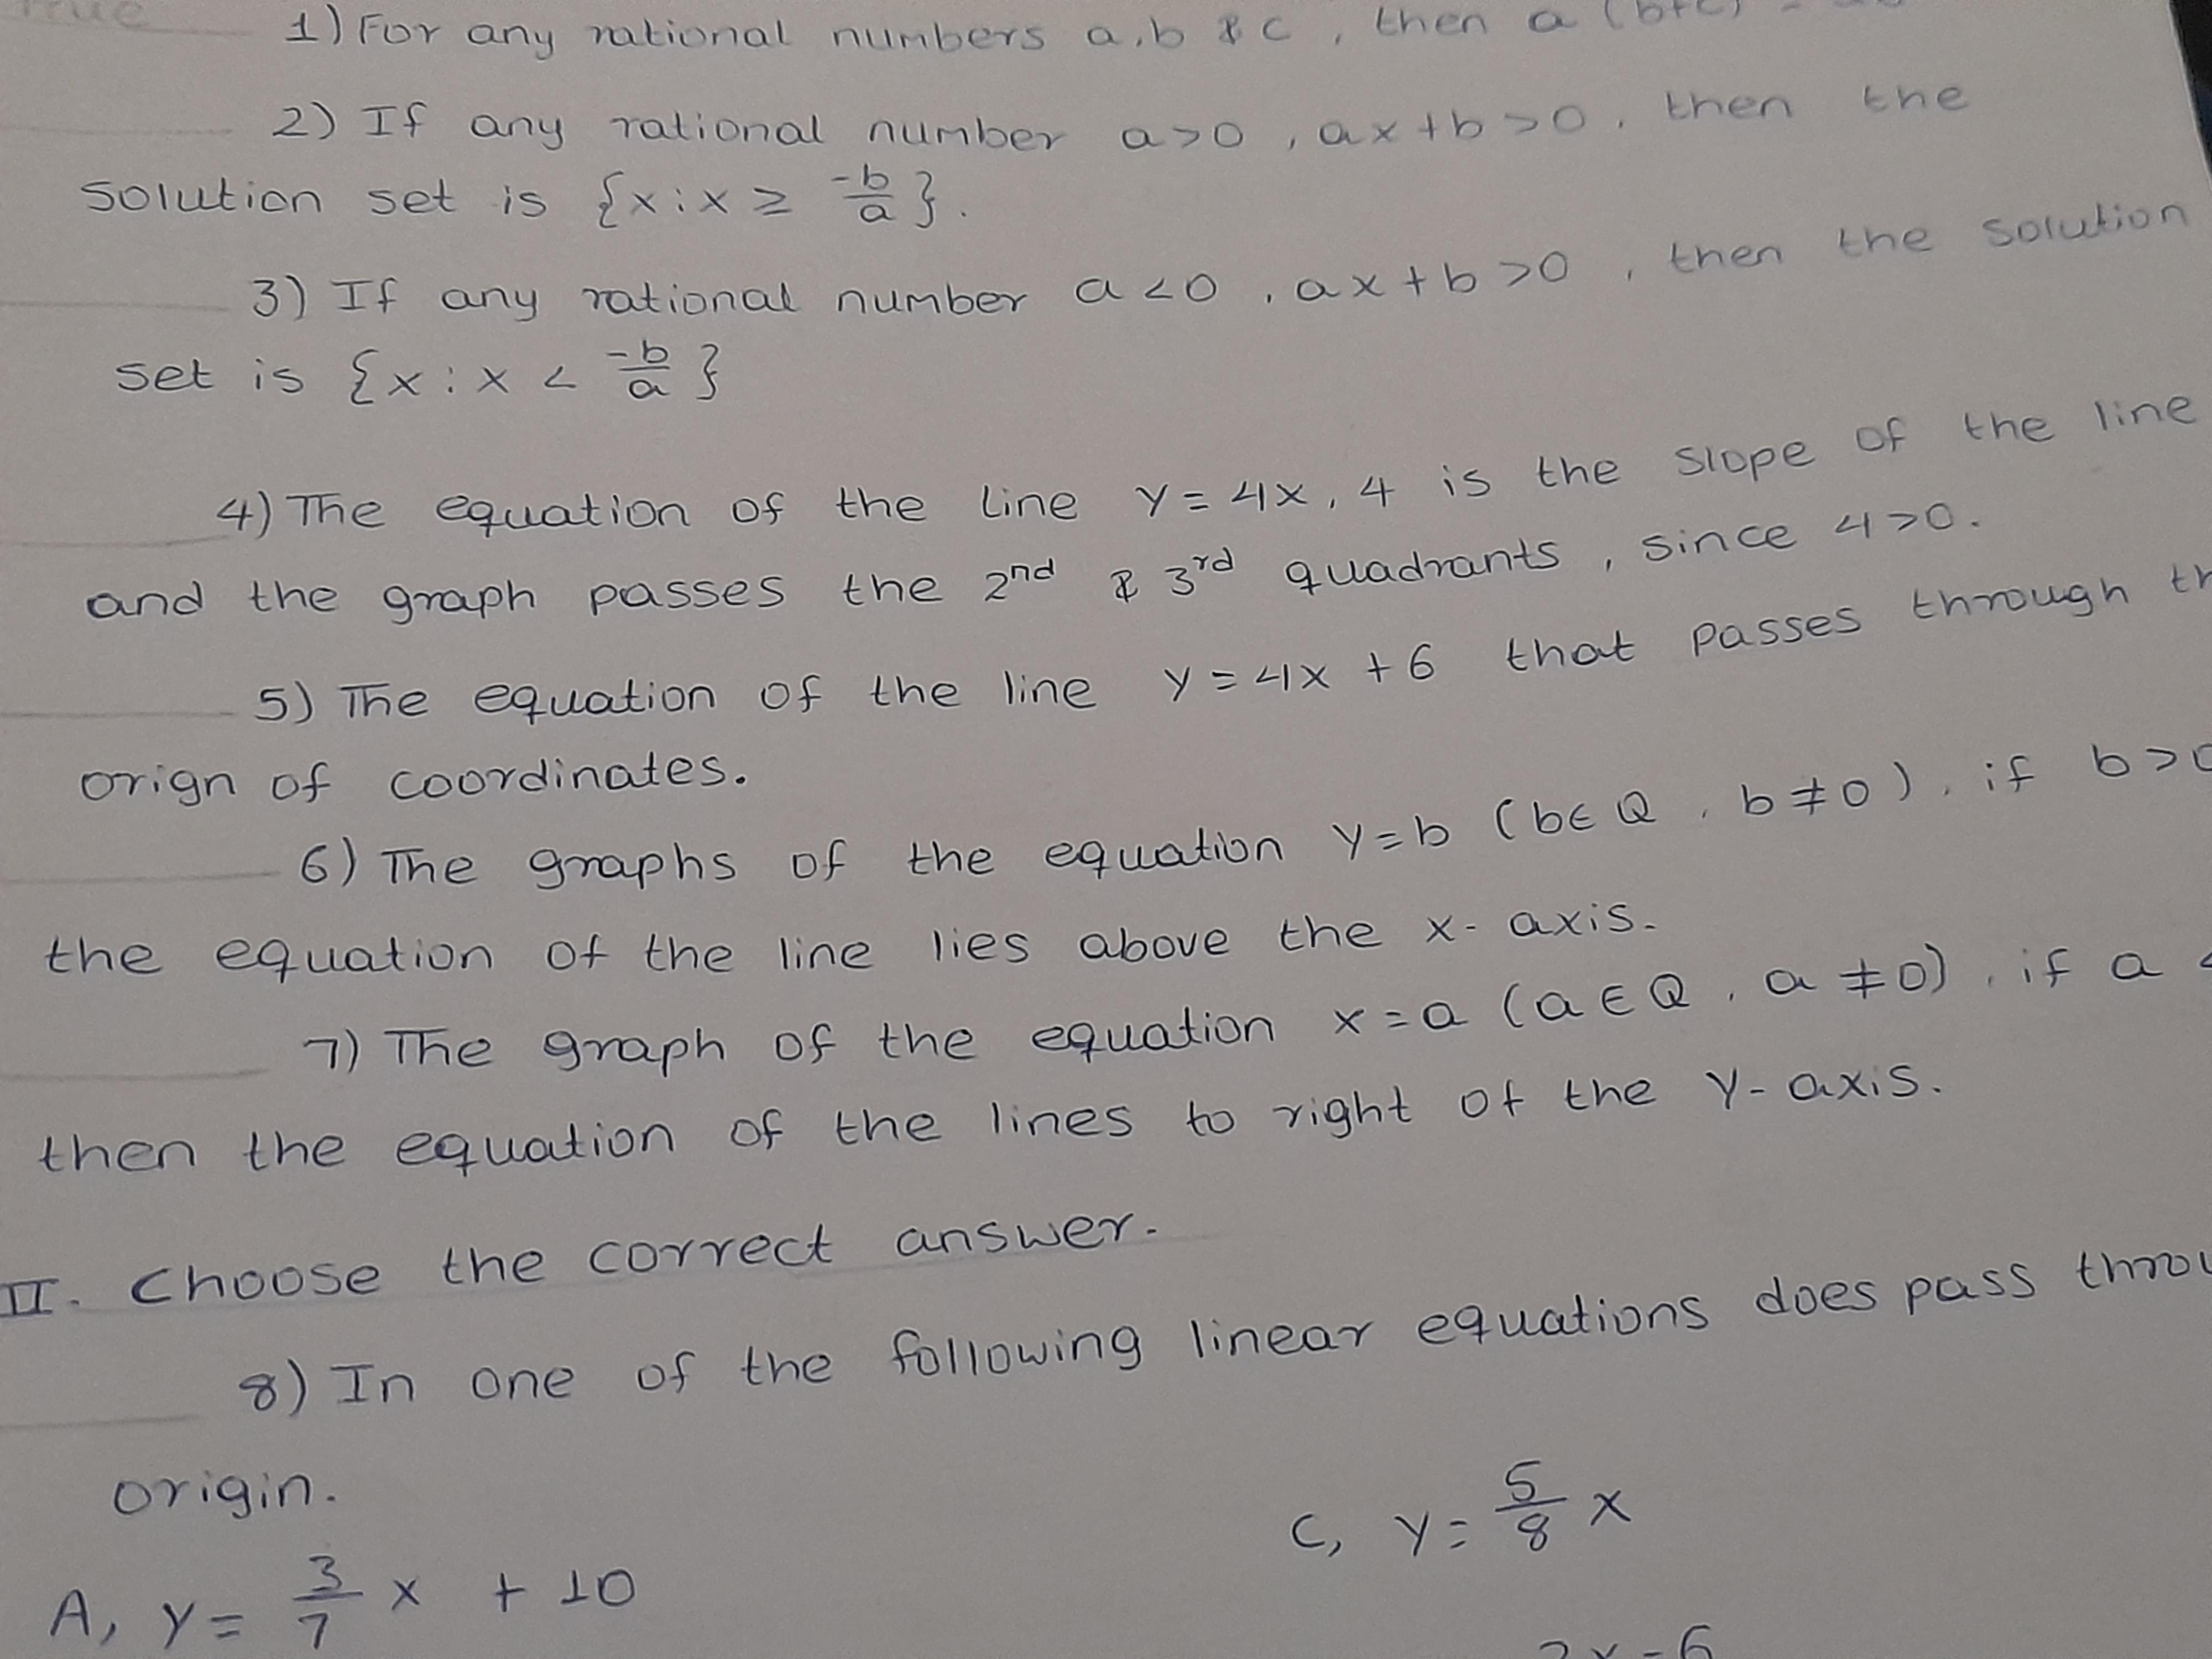 True 1) For any rational numbers a,b & c, then a (b+c) =
2) If any rational number a>0, ax+b>0, then the
solution set is {x:x ≥ -b/a}.
3) If any rational number a<0, ax+b>0, then the solution
set is {x:x < -b/a}
4) The equation of the line y=4x, 4 is the slope of the line
and the graph passes the 2nd & 3rd quadrants, since 4>0.
5) The equation of the line y=4x+6 that passes through
orign of coordinates.
6) The graphs of the equation y=b (b∈Q, b≠0), if b>
the equation of the line lies above the x-axis.
7) The graph of the equation x=a (a∈Q, a≠0), if a <
then the equation of the lines to right of the y-axis.
II. Choose the correct answer.
8) In one of the following linear equations does pass
origin.
A, y= 3/7 x + 10
C, y= 5/8 x